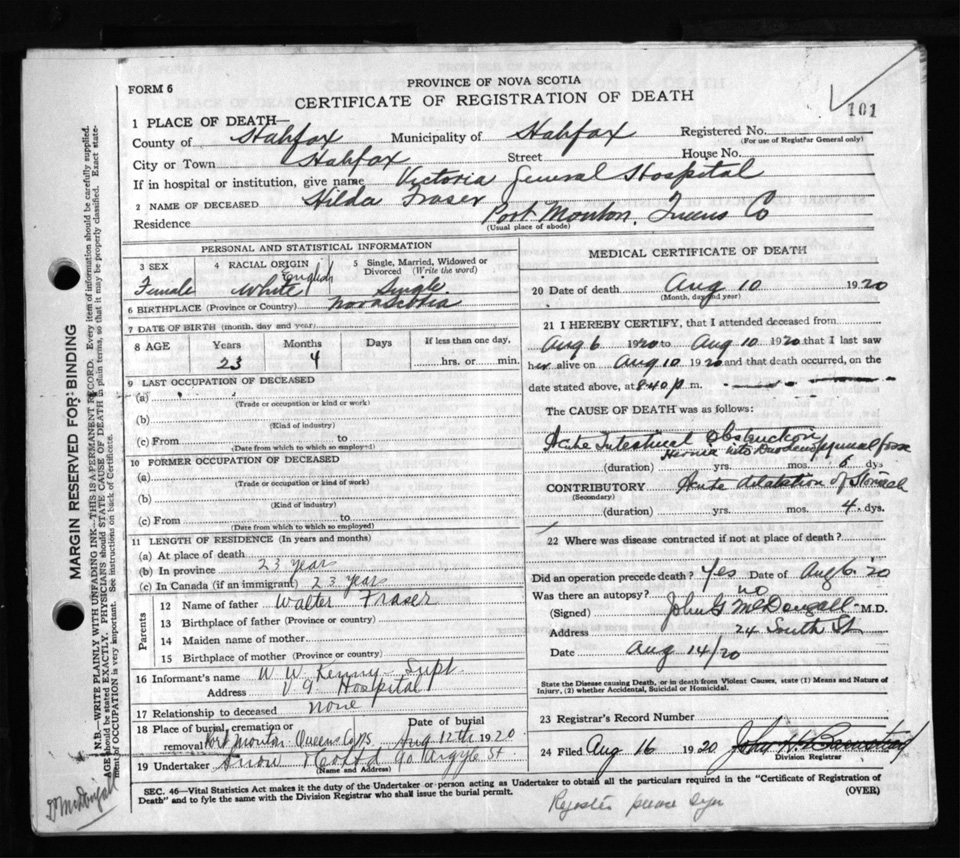 PROVINCE OF NOVA SCOTIA
FORM 6
CERTIFICATE OF REGISTRATION OF DEATH
101
1 PLACE OF DEATH—
County of Halifax Municipality of Halifax Registered No.
(For use of Registrar General only)
City or Town Halifax Street House No.
If in hospital or institution, give name Victoria General Hospital
2 NAME OF DECEASED Hilda Fraser
Residence Port Mouton, Queens Co
(Usual place of abode)
PERSONAL AND STATISTICAL INFORMATION
3 SEX 4 RACIAL ORIGIN 5 Single, Married, Widowed or Divorced (Write the word)
English
Female White Single
6 BIRTHPLACE (Province or Country) Nova Scotia
7 DATE OF BIRTH (month, day and year)
8 AGE Years Months Days If less than one day,
23 4 hrs. or min.
9 LAST OCCUPATION OF DECEASED
(a)
(Trade or occupation or kind or work)
(b)
(Kind of industry)
(c) From to
(Date from which to which so employed)
10 FORMER OCCUPATION OF DECEASED
(a)
(Trade or occupation or kind of work)
(b)
(Kind of industry)
(c) From to
(Date from which to which so employed)
11 LENGTH OF RESIDENCE (In years and months)
(a) At place of death
(b) In province 23 years
(c) In Canada (if an immigrant) 23 years
Parents
12 Name of father Walter Fraser
13 Birthplace of father (Province or country)
14 Maiden name of mother
15 Birthplace of mother (Province or country)
16 Informant's name W W Kenny Supt
Address V G Hospital
17 Relationship to deceased none
18 Place of burial, cremation or removal Port Mouton Queens Co NS Date of burial Aug 12th 1920
19 Undertaker Snow & Co Ltd 90 Argyle St
(Name and Address)
MEDICAL CERTIFICATE OF DEATH
20 Date of death Aug 10 1920
(Month, day and year)
21 I HEREBY CERTIFY, that I attended deceased from
Aug 6 1920 to Aug 10 1920 that I last saw
her alive on Aug 10 1920 and that death occurred, on the
date stated above, at 8.40 p m.
The CAUSE OF DEATH was as follows:
Acute Intestinal Obstruction
Hernia into Duodenojejunal fossa
(duration) yrs. mos. 6 dys
CONTRIBUTORY Acute dilatation of Stomach
(Secondary)
(duration) yrs. mos. 4 dys.
22 Where was disease contracted if not at place of death?
Did an operation precede death? Yes Date of Aug 6 '20
Was there an autopsy? no
(Signed) John G McDougall M.D.
Address 24 South St
Date Aug 14/20
State the Disease Causing Death, or in death from Violent Causes, state (1) Means and Nature of
Injury, (2) whether Accidental, Suicidal or Homicidal.
23 Registrar's Record Number
24 Filed Aug 16 1920 John
Division Registrar
SEC. 46—Vital Statistics Act makes it the duty of the Undertaker or person acting as Undertaker to obtain all the particulars required in the "Certificate of Registration of
Death" and to fyle the same with the Division Registrar who shall issue the burial permit. (OVER)
Register please
MARGIN RESERVED FOR BINDING
N.B.—WRITE PLAINLY WITH UNFADING INK—THIS IS A PERMANENT RECORD. Every item of information should be carefully supplied.
AGE should be stated EXACTLY. PHYSICIANS should STATE CAUSE OF DEATH in plain terms, so that it may be properly classified. Exact statement
of OCCUPATION is very important. See instructions on back of Certificate.
Dr McDougall